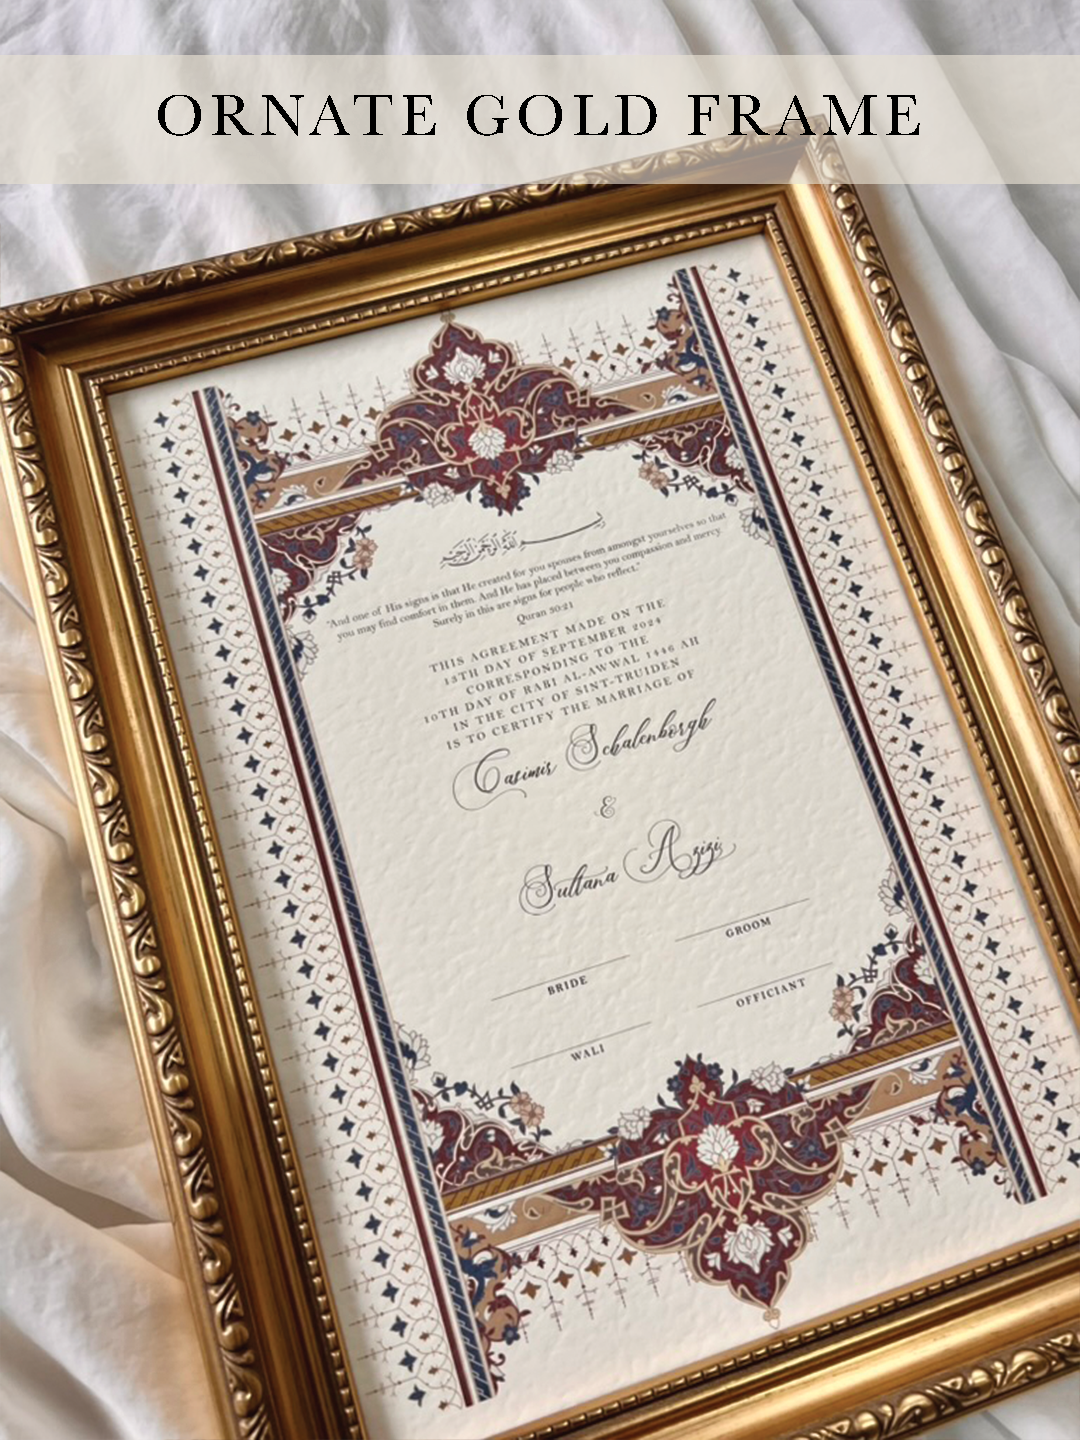 ORNATE GOLD FRAME
بسم الله الرحمن الرحيم
"And one of His signs is that He created for you spouses from amongst yourselves so that
you may find comfort in them. And He has placed between you compassion and mercy.
Surely in this are signs for people who reflect."
Quran 30:21
THIS AGREEMENT MADE ON THE
13TH DAY OF SEPTEMBER 2024
CORRESPONDING TO THE
10TH DAY OF RABI AL-AWWAL 1446 AH
IN THE CITY OF SINT-TRUIDEN
IS TO CERTIFY THE MARRIAGE OF
Casimir Schalenborgh
&
Sultana Azizi
GROOM
BRIDE
OFFICIANT
WALI